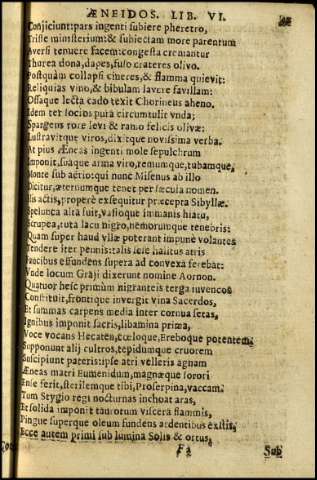 ÆNEIDOS. LIB. VI.
Conjiciunt: pars ingenti subiere pheretro,
Triste ministerium: & subiectam more parentum
Aversi tenuere facem: congesta cremantur
Thurea dona, dapes, fuso crateres olivo.
Postquàm collapsi cineres, & flamma quievit:
Reliquias vino, & bibulam lavere favillam:
Ossaque lecta cado texit Chorineus aheno.
Idem ter socios pura circumtulit vnda;
Spargens rore levi & ramo felicis olivæ:
Lustravitque viros, dixitque novissima verba.
At pius Æneas ingenti mole sepulchrum
Imponit, suaque arma viro, remumque, tubamque,
Monte sub aërio: qui nunc Misenus ab illo
Dicitur, æternumque tenet per sæcula nomen.
His actis, properè exsequitur præcepta Sibyllæ.
Spelunca alta fuit, vastoque immanis hiatu,
Scrupea, tuta lacu nigro, nemorumque tenebris:
Quam super haud vllæ poterant impunè volantes
Tendere iter pennis: talis sese halitus atris
Faucibus effundens supera ad convexa ferebat:
Vnde locum Graji dixerunt nomine Aornon.
Quatuor hîc primùm nigranteis terga iuvencos
Constituit, frontique invergit vina Sacerdos,
Et summas carpens media inter cornua setas,
Ignibus imponit sacris, libamina prima,
Voce vocans Hecaten, cæloque, Ereboque potentem.
Supponunt alij cultros, tepidumque cruorem
Suscipiunt pateris: ipse atri velleris agnam
Æneas matri Eumenidum, magnæque sorori
Ense ferit, sterilemque tibi, Proserpina, vaccam.
Tum Stygio regi nocturnas inchoat aras,
Et solida imponit taurorum viscera flammis,
Pingue superque oleum fundens ardentibus exstis,
Ecce autem primi sub lumina Solis & ortus,
Sub